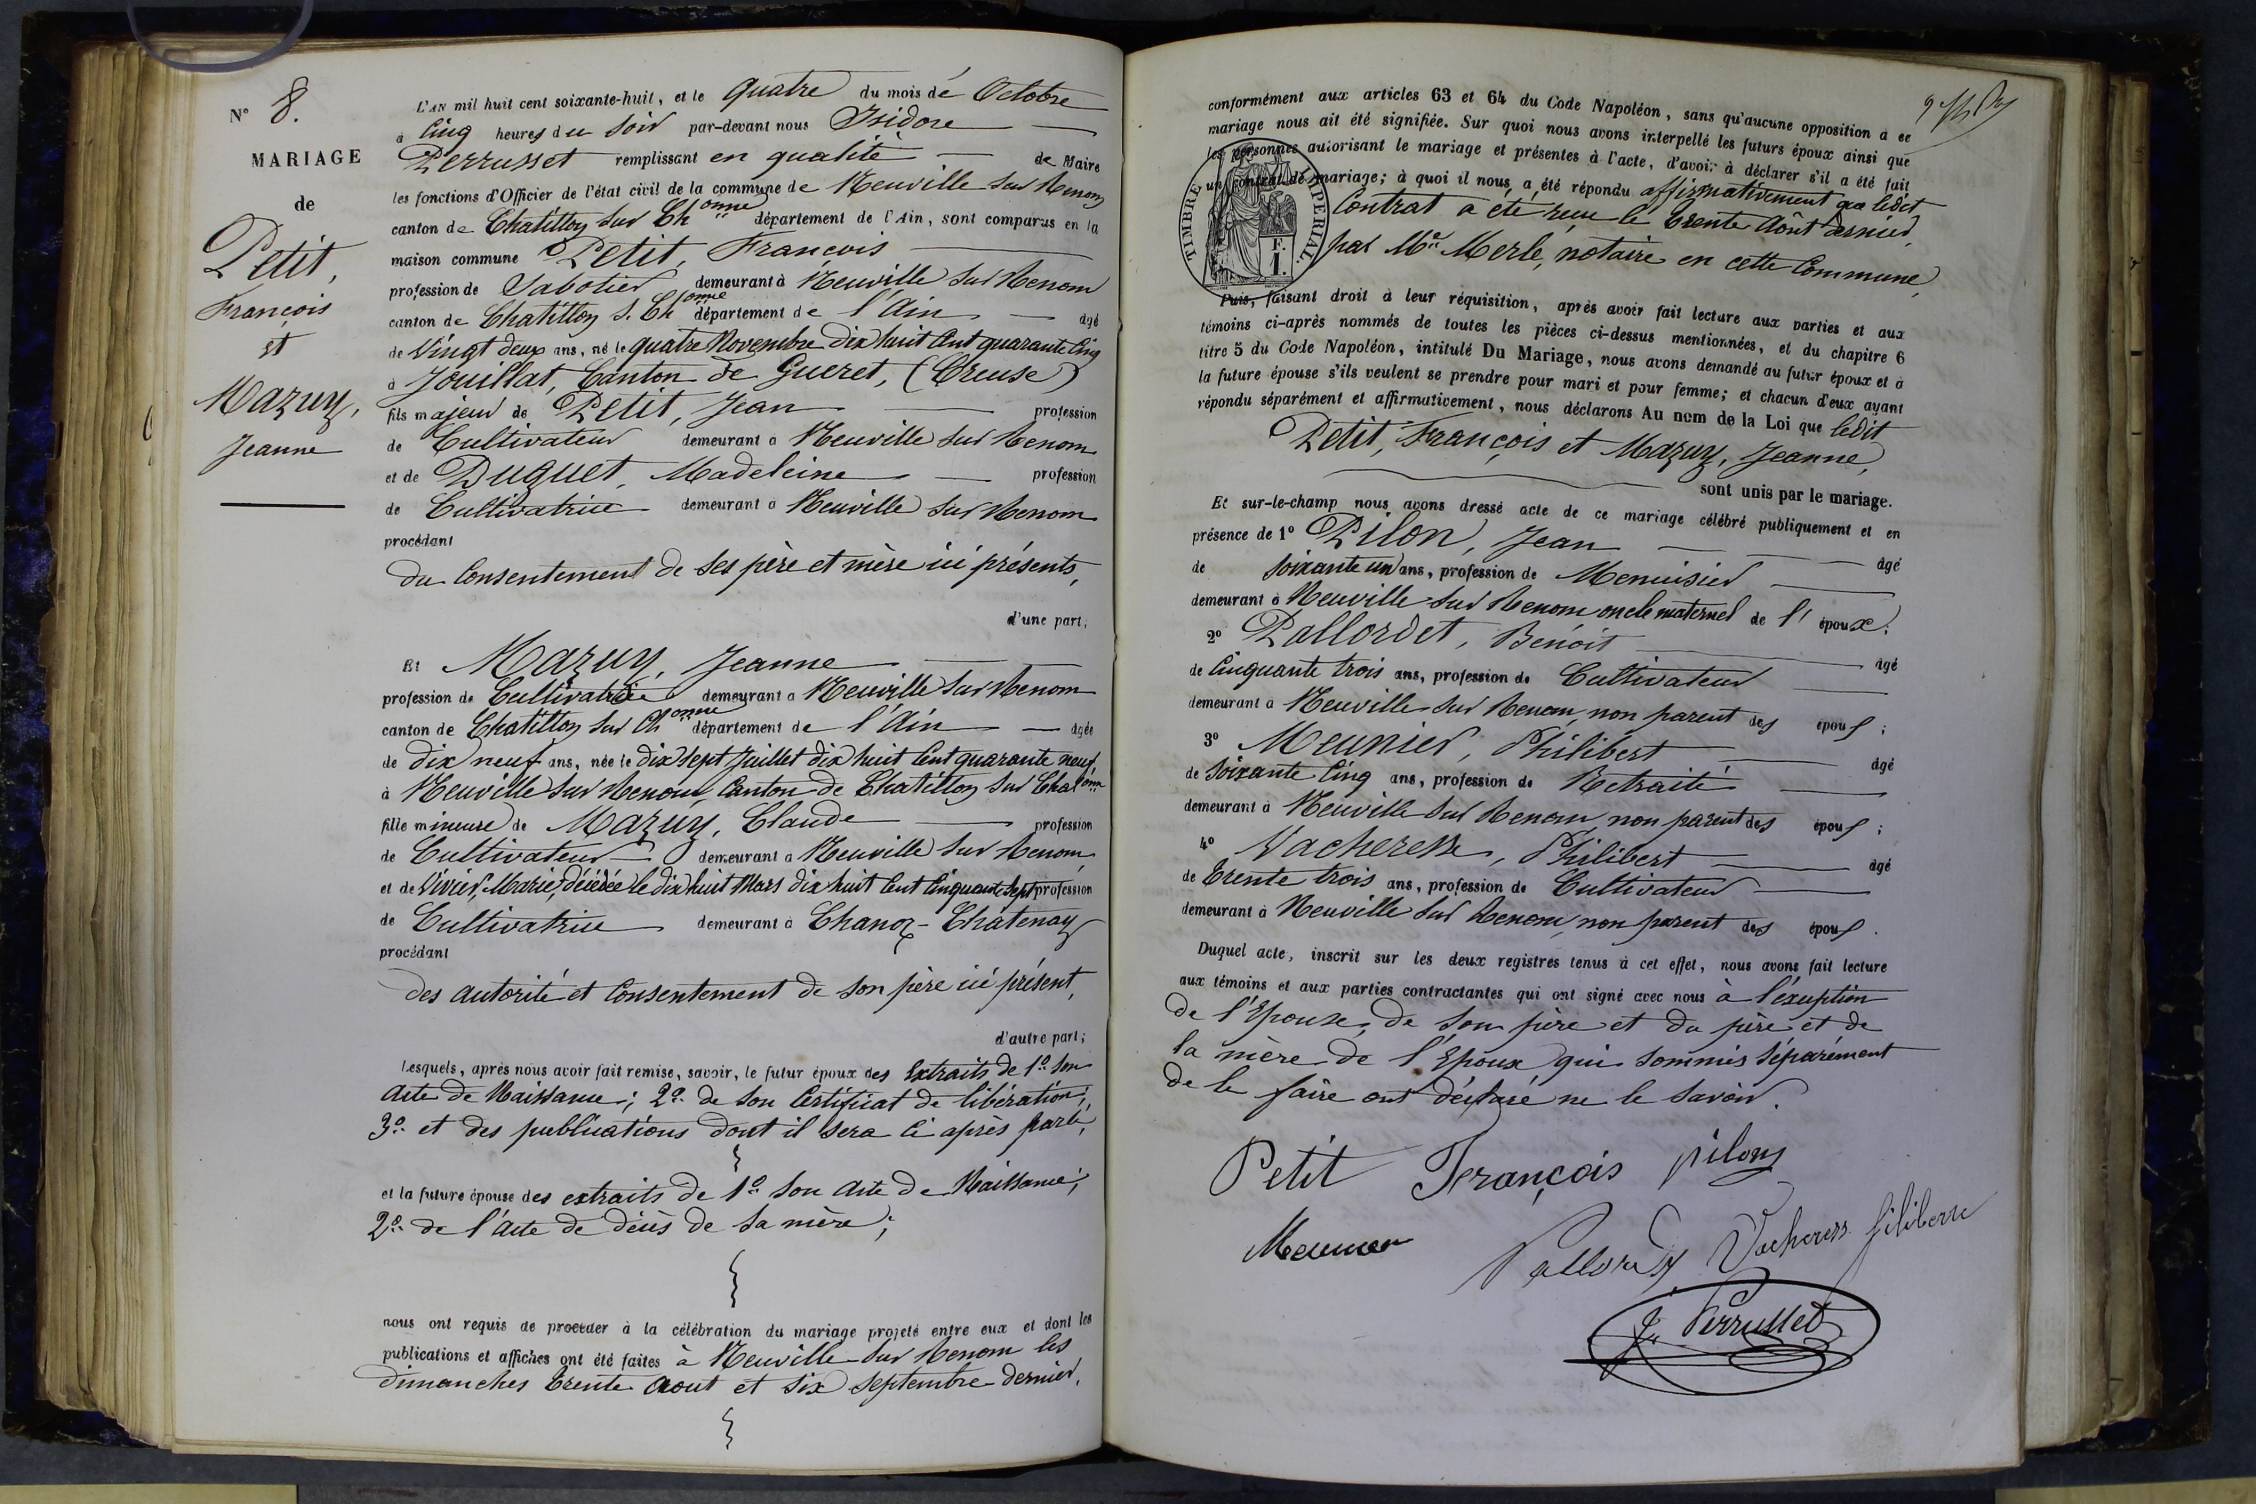 N° 8.
MARIAGE
de
Petit,
François
et
Mazuy,
Jeanne
L'AN mil huit cent soixante-huit, et le quatre du mois de Octobre
à Cinq heures du Soir par-devant nous Isidore
Perrusset remplissant en qualité de Maire
les fonctions d'Officier de l'état civil de la commune de Neuville sur Renom
canton de Chatillon sur Chonne département de l'Ain, sont comparus en la
maison commune Petit, François
profession de Sabotier demeurant à Neuville sur Renom
canton de Chatillon s. Chonne département de l'Ain âgé
de Vingt deux ans, né le quatre Novembre dix huit Cent quarante Cinq
à Jouillat, Canton de Gueret, (Creuse)
fils majeur de Petit, Jean profession
de Cultivateur demeurant à Neuville sur Renom
et de Duguet, Madeleine profession
de Cultivatrice demeurant à Neuville sur Renom
procédant
du Consentement de ses père et mère ici présents,
d'une part,
Et Mazuy, Jeanne
profession de Cultivatrice demeurant à Neuville sur Renom
canton de Chatillon sur Chonne département de l'Ain âgée
de dix neuf ans, née le dix sept Juillet dix huit Cent quarante neuf,
à Neuville sur Renom, Canton de Chatillon sur Chalonne
fille mineure de Mazuy, Claude profession
de Cultivateur demeurant à Neuville sur Renom
et de Vivier, Marie, décédée le dix huit Mars dix huit Cent Cinquante Sept profession
de Cultivatrice demeurant à Chanoz-Chatenay
procédant
des autorité et Consentement de son père ici présent,
d'autre part;
Lesquels, après nous avoir fait remise, savoir, le futur époux des Extraits de 1° son
Acte de Naissance; 2° de son Certificat de libération;
3° et des publications dont il sera ci après parlé,
et la future épouse des extraits de 1° son Acte de Naissance;
2° de l'Acte de décès de sa mère;
nous ont requis de procéder à la célébration du mariage projeté entre eux et dont les
publications et affiches ont été faites à Neuville sur Renom les
dimanches trente Aout et six septembre dernier,
conformément aux articles 63 et 64 du Code Napoléon, sans qu'aucune opposition à ce
mariage nous ait été signifiée. Sur quoi nous avons interpellé les futurs époux ainsi que
les personnes autorisant le mariage et présentes à l'acte, d'avoir à déclarer s'il a été fait
un contrat de mariage; à quoi il nous a été répondu affirmativement que ledit
Contrat a été reçu le trente Août dernier,
par Me Merle, notaire en cette Commune,
TIMBRE IMPERIAL.
F.
I.
Puis, faisant droit à leur réquisition, après avoir fait lecture aux parties et aux
témoins ci-après nommés de toutes les pièces ci-dessus mentionnées, et du chapitre 6
titre 5 du Code Napoléon, intitulé Du Mariage, nous avons demandé au futur époux et à
la future épouse s'ils veulent se prendre pour mari et pour femme; et chacun d'eux ayant
répondu séparément et affirmativement, nous déclarons Au nom de la Loi que ledit
Petit, François et Mazuy, Jeanne,
sont unis par le mariage.
Et sur-le-champ nous avons dressé acte de ce mariage célébré publiquement et en
présence de 1° Pilon, Jean âgé
de soixante un ans, profession de Menuisier
demeurant à Neuville sur Renom oncle maternel de l'époux:
2° Pallordet, Benoit âgé
de Cinquante trois ans, profession de Cultivateur
demeurant à Neuville sur Renom, non parent des epous;
3° Meunier, Philibert âgé
de Soixante Cinq ans, profession de Retraité
demeurant à Neuville sur Renom non parent des épous;
4° Vacheresse, Philibert âgé
de Trente trois ans, profession de Cultivateur
demeurant à Neuville sur Renom, non parent des épous.
Duquel acte, inscrit sur les deux registres tenus à cet effet, nous avons fait lecture
aux témoins et aux parties contractantes qui ont signé avec nous à l'exception
de l'Epouse, de son père et du père et de
la mère de l'Epoux qui sommés séparément
de le faire ont déclaré ne le savoir.
Petit François pilon
Meunier Pallordet Vacheress filiberte
Je Perrusset